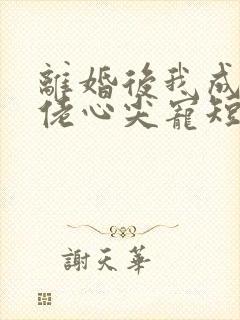 離婚後我成
佬心尖寵短
謝天華